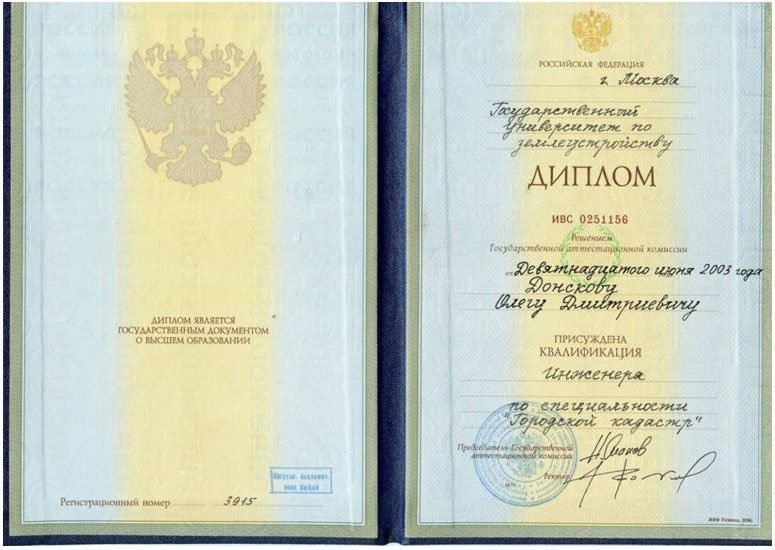 ДИПЛОМ ЯВЛЯЕТСЯ
ГОСУДАРСТВЕННЫМ ДОКУМЕНТОМ
О ВЫСШЕМ ОБРАЗОВАНИИ
Регистрационный номер 3915
РОССИЙСКАЯ ФЕДЕРАЦИЯ
г. Москва
Государственный
университет по
землеустройству
ДИПЛОМ
ИВС 0251156
Решением
Государственной аттестационной комиссии
от Девятнадцатого июня 2003 года
Донскову
Олегу Дмитриевичу
ПРИСУЖДЕНА
КВАЛИФИКАЦИЯ
Инженера
по специальности
"Городской кадастр"
Председатель Государственной
аттестационной комиссии
Ректор